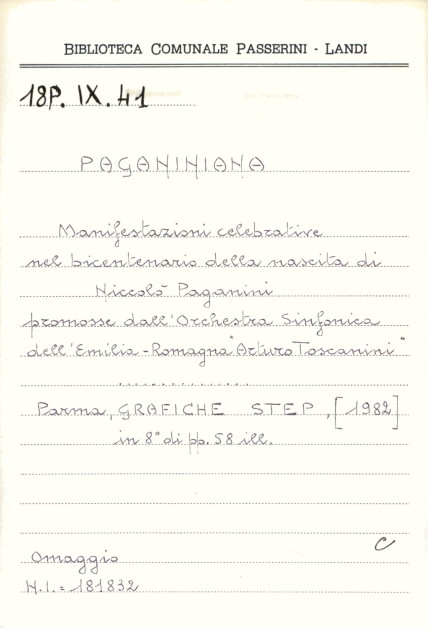 BIBLIOTECA COMUNALE PASSERINI - LANDI
18P. IX. 41
PAGANINIANA
Manifestazioni celebrative
nel bicentenario della nascita di
Niccolò Paganini
promosse dall'Orchestra Sinfonica
dell'Emilia-Romagna "Arturo Toscanini"
.............
Parma, GRAFICHE STEP, [1982]
in 8° di pp. 58 ill.
C
Omaggio
N.I. = 181832